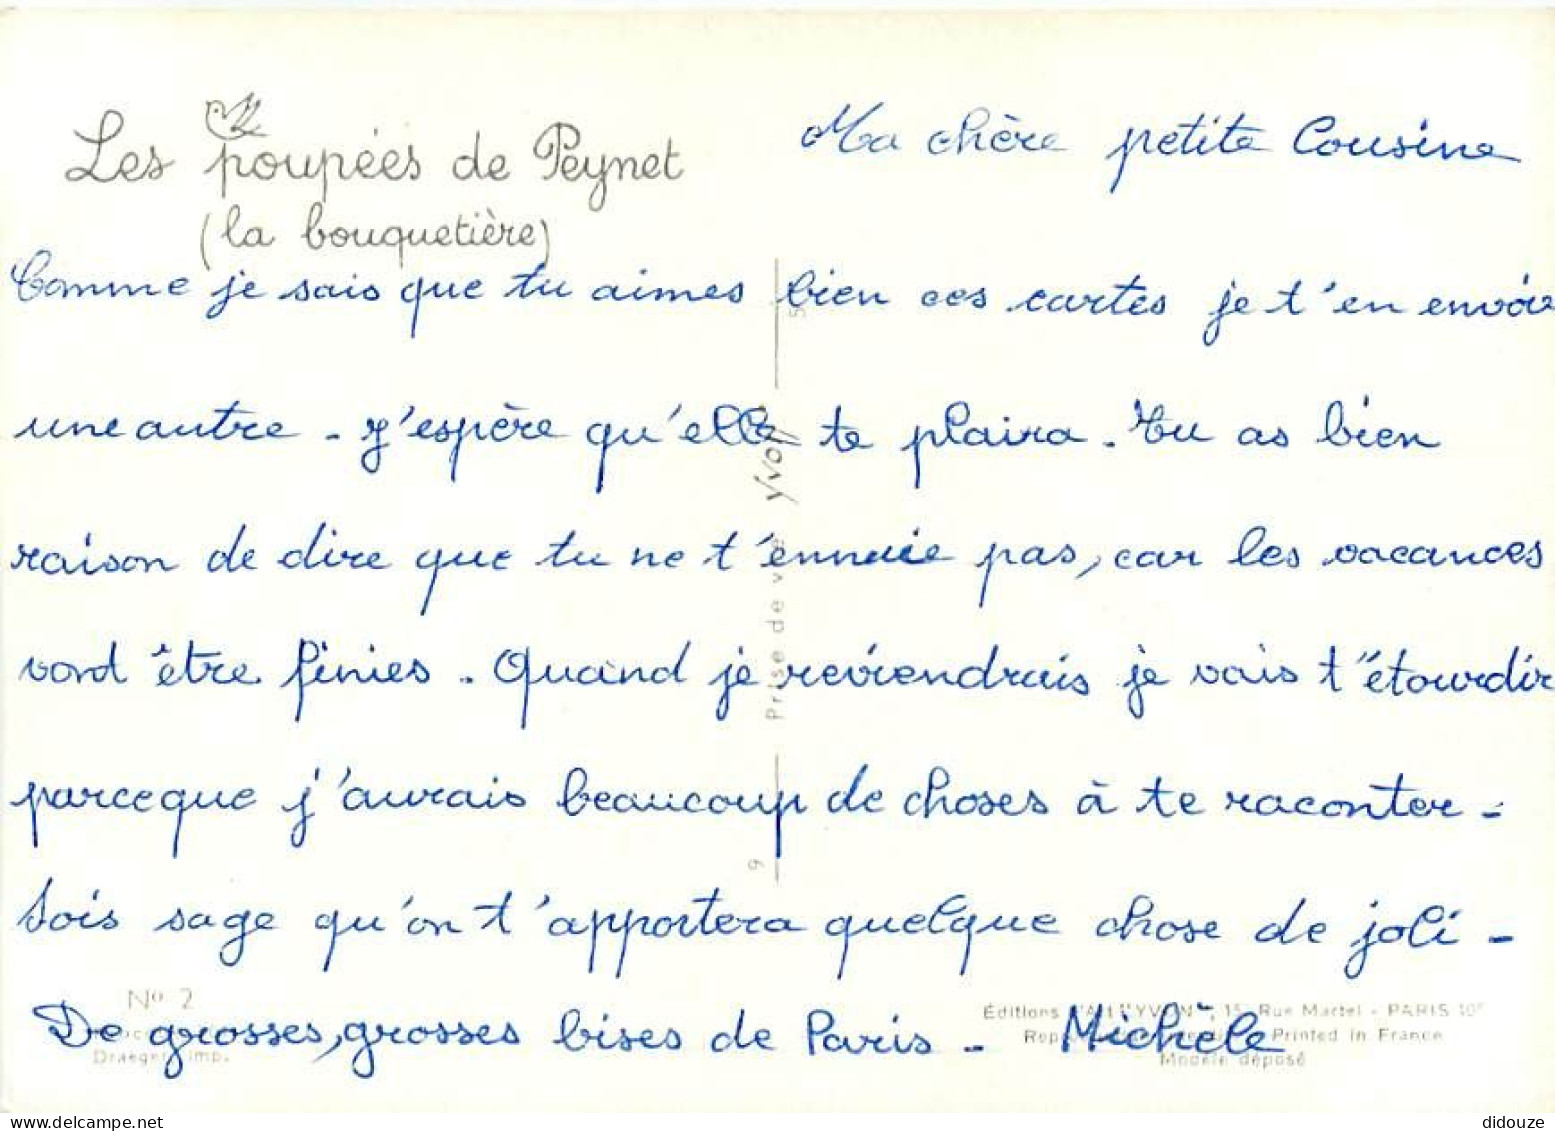 Les poupées de Peynet
(la bouquetière)
Ma chère petite Cousine
Comme je sais que tu aimes bien ces cartes je t'en envoie
une autre - J'espère qu'elle te plaira. Tu as bien
raison de dire que tu ne t'ennuie pas, car les vacances
vont être finies. Quand je reviendrais je vais t'étourdir
parceque j'aurais beaucoup de choses à te raconter -
Sois sage qu'on t'apportera quelque chose de joli -
De grosses, grosses bises de Paris - Michèle
Prise de vue Yvon
9
5
Nº 2
Draeger Imp.
Éditions d'Art "YVON", 15, Rue Martel - PARIS 10e
Printed in France
Modèle déposé
didouze
delcampe.net